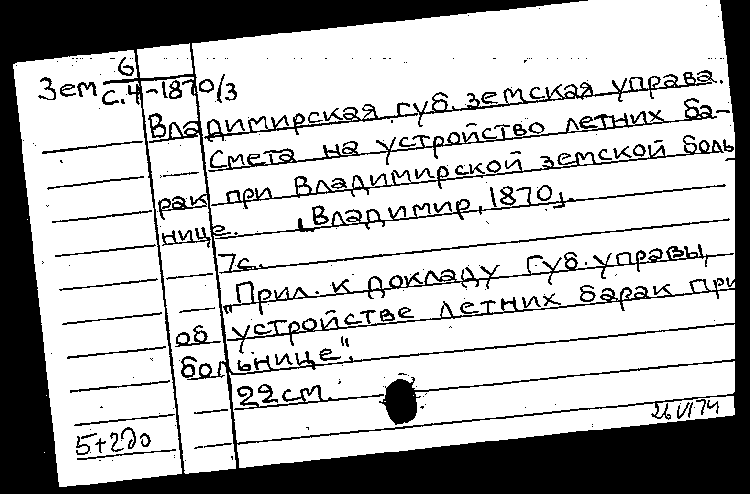 Зем 6
С.4-1870/3
Владимирская губ. земская управа.
Смета на устройство летних ба-
рак при Владимирской земской боль
нице. [Владимир, 1870].
7с.
"Прил. к докладу губ. управы,
об устройстве летних барак при
больнице".
22см.
5+2до
26 VI 74